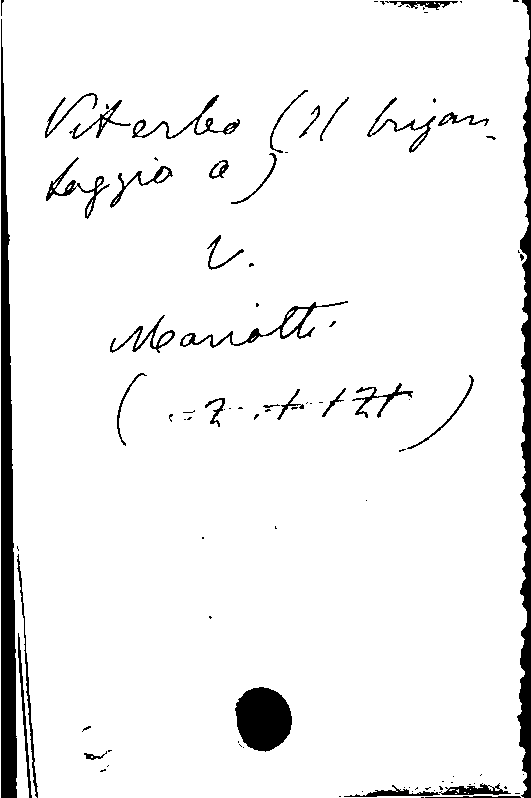 Viterbo (Il brigan-
taggio a)
V.
Mariotti.